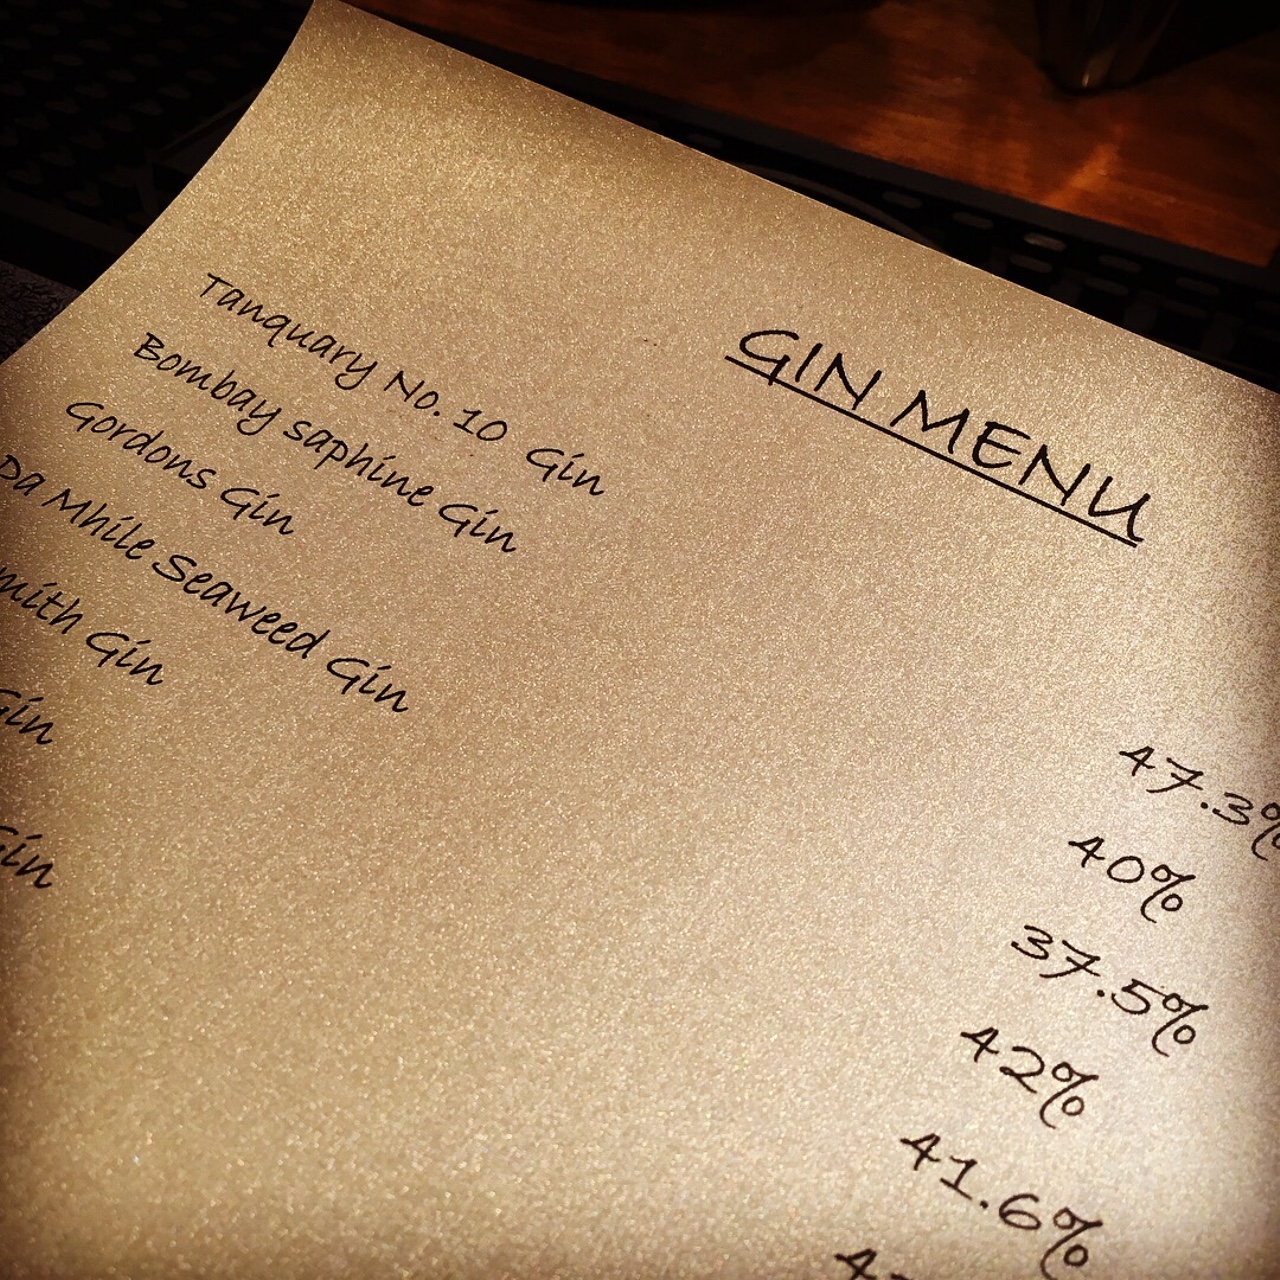 GIN MENU
Tanquary No. 10 Gin 47.3%
Bombay saphine Gin 40%
Gordons Gin 37.5%
Da Mhile Seaweed Gin 42%
mith Gin 41.6%
Gin
Gin